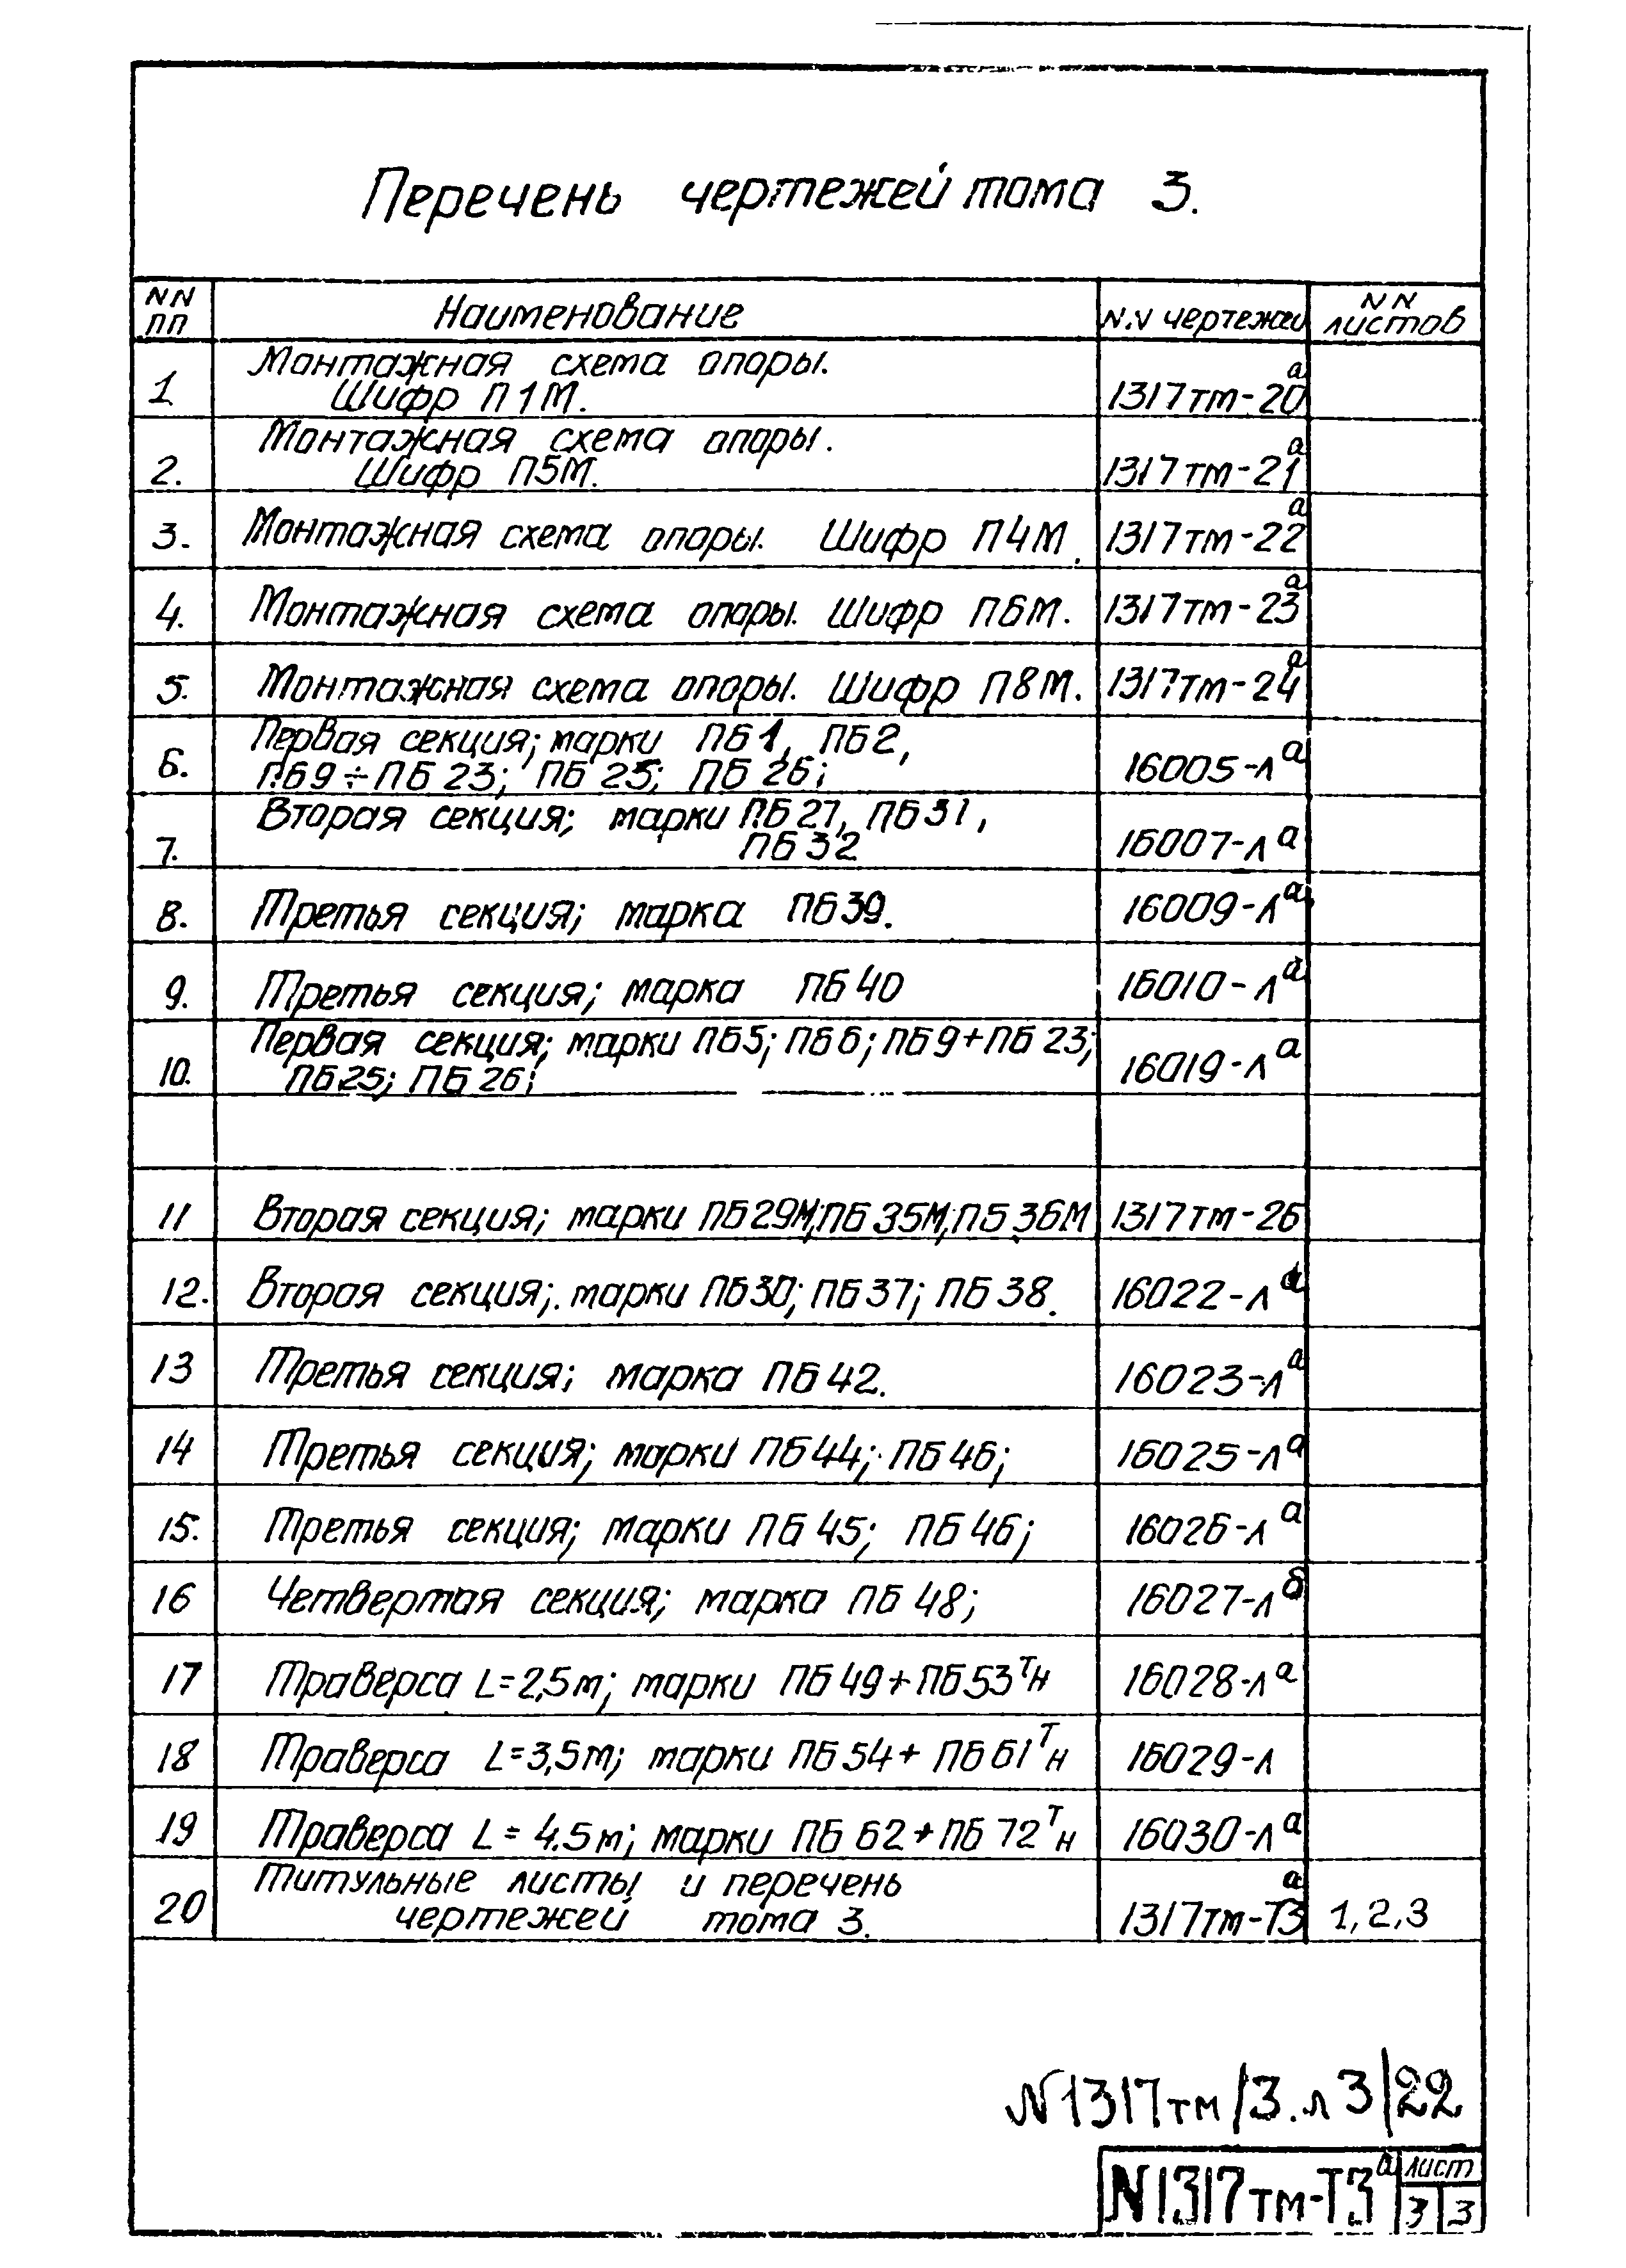 Перечень чертежей тома 3.
NN Наименование N.N чертежей NN
пп листов
Монтажная схема опоры.
1 Шифр П1М. 1317тм-20а
Монтажная схема опоры.
2. Шифр П5М. 1317тм-21а
3. Монтажная схема опоры. Шифр П4М. 1317тм-22а
4. Монтажная схема опоры. Шифр П6М. 1317тм-23а
5. Монтажная схема опоры. Шифр П8М. 1317тм-24а
Первая секция; марки ПБ1, ПБ2,
6. ПБ9÷ПБ23; ПБ25; ПБ26; 16005-ла
Вторая секция; марки ПБ27, ПБ31,
7. ПБ32 16007-ла
8. Третья секция; марка ПБ39. 16009-ла
9. Третья секция; марка ПБ40 16010-ла
Первая секция; марки ПБ5; ПБ6; ПБ9+ПБ23;
10. ПБ25; ПБ26; 16019-ла
11 Вторая секция; марки ПБ29М;ПБ35М;ПБ36М 1317тм-26
12. Вторая секция; марки ПБ30; ПБ37; ПБ38. 16022-ла
13 Третья секция; марка ПБ42. 16023-ла
14 Третья секция; марки ПБ44; ПБ46; 16025-ла
15. Третья секция; марки ПБ45; ПБ46; 16026-ла
16 Четвертая секция; марка ПБ48; 16027-лб
17 Траверса L=2,5м; марки ПБ49+ПБ53Тн 16028-ла
18 Траверса L=3,5м; марки ПБ54+ПБ61Тн 16029-л
19 Траверса L=4.5м; марки ПБ62+ПБ72Тн 16030-ла
Титульные листы и перечень
20 чертежей тома 3. 1317тм-Т3а 1,2,3
N1317тм/3.л3/22
N1317тм-Т3а лист
3 3